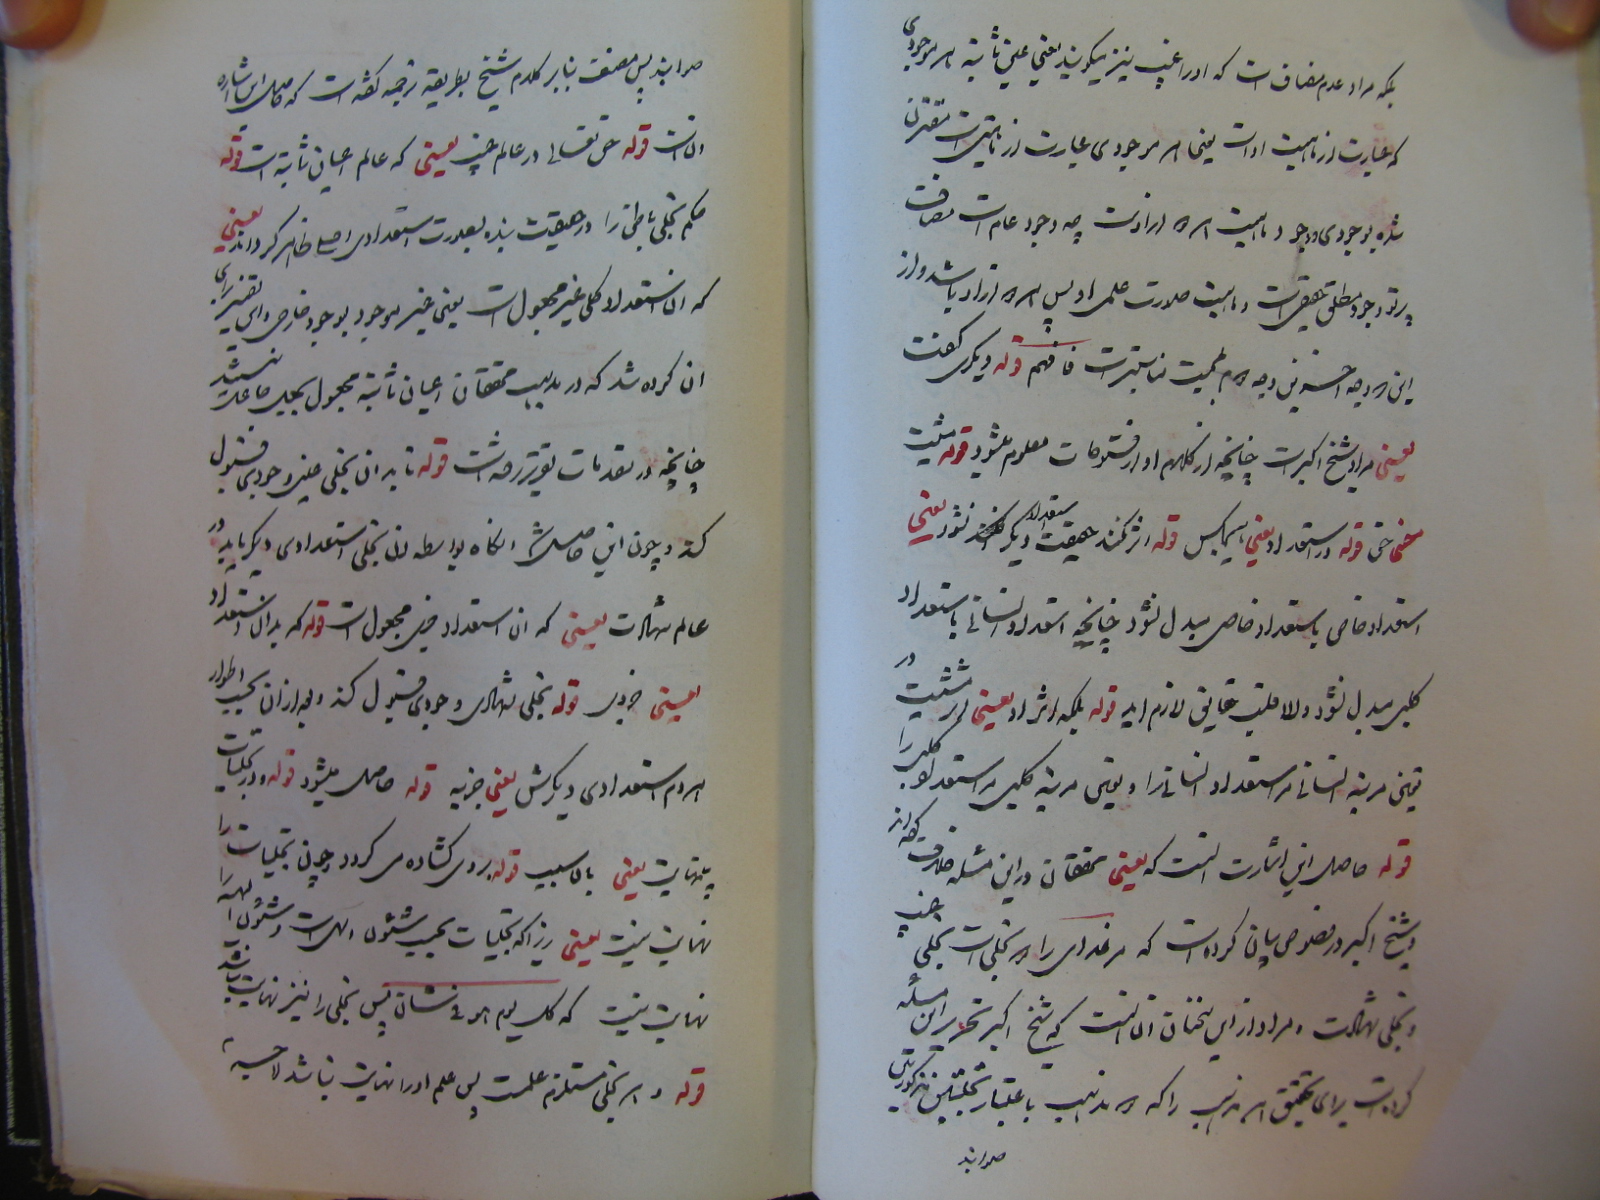 بلکه مراد عدم مضاف است که او را غیب نیز میگویند یعنی عین ثابته هر موجودی
که عبارت از ماهیت اوست یعنی هر موجودی عبارت از ماهیتی است مقترن
شده بوجودی و وجود و ماهیت هر دو ازوست چه وجود عام است مضاف
پرتو وجود مطلق حقیقی است و ماهیت صورت علمی او پس هر دو ازو باشد و از
این دو وجه وجه دوم مناسبتر است فافهم قوله دیگری گفت
یعنی مراد شیخ اکبر است چنانچه از کلام او از فتوحات معلوم میشود قوله مشیت
حق قوله در استعداد یعنی هیچکس قوله اثر نکند حقیقت دیگر نشود یعنی
استعداد خاص باستعداد خاص مبدل نشود چنانچه استعداد انسانی باستعداد
کلبی مبدل نشود والا قلب حقایق لازم اید قوله بلکه اثر او یعنی اثر مشیت در
تعین مرتبه انسانی مر استعداد انسانی را و تعین مرتبه کلبی مر استعداد کلبی را
قوله حاصل این اشارت انست که یعنی محققان در این مسئله خلاف کرده اند
و شیخ اکبر در فصوص بیان کرده است که مر خدای را دو تجلی است تجلی غیب
و تجلی شهادت و مراد از این سخنان ان است که شیخ اکبر تحریر این مسئله
کرده است برای تحقیق هر دو مذهب را که دو مذهب باعتبار تجلیتین مذکورتین
صوابند
صوابند پس مصنف بنابر کلام شیخ بطریقه ترجمه گفته است که حاصل این اشاره
انست قوله حق تعالی در عالم غیب یعنی که عالم اعیان ثابته است قوله
بحکم تجلی باطن را در حقیقت بنده بصورت استعدادی اصلی ظاهر گرداند یعنی
که ان استعداد کلی غیر مجعول است یعنی غیر موجود بوجود خارجی و این تفسیر برای
ان کرده شد که در مذهب محققان اعیان ثابته مجعول بجعل جاعل نیستند
چنانچه در مقدمات تقریر رفته است قوله تا بدان تجلی عینی وجودی قبول
کند و چون این حاصل شد انگاه بواسطه ان تجلی استعدادی دیگر یابد در
عالم شهادت یعنی که ان استعداد جزی مجعول است قوله که بدان استعداد
یعنی جزوی قوله تجلی شهادی وجودی قبول کند و بعد ازان بحسب اطوار
هر دم استعدادی دیگرش یعنی جزیه قوله حاصل میشود قوله و در تجلیات
بینهایت یعنی بان سبب قوله بروی گشاده می گردد و چون تجلیات را
نهایت نیست یعنی زیراکه تجلیات بحسب شئون الهی است و شئون الهیه را
نهایت نیست که کل یوم هو فی شان پس تجلی را نیز نهایت نباشد
قوله و هر تجلی مستلزم علمست پس علم او را نهایت نباشد لاجرم